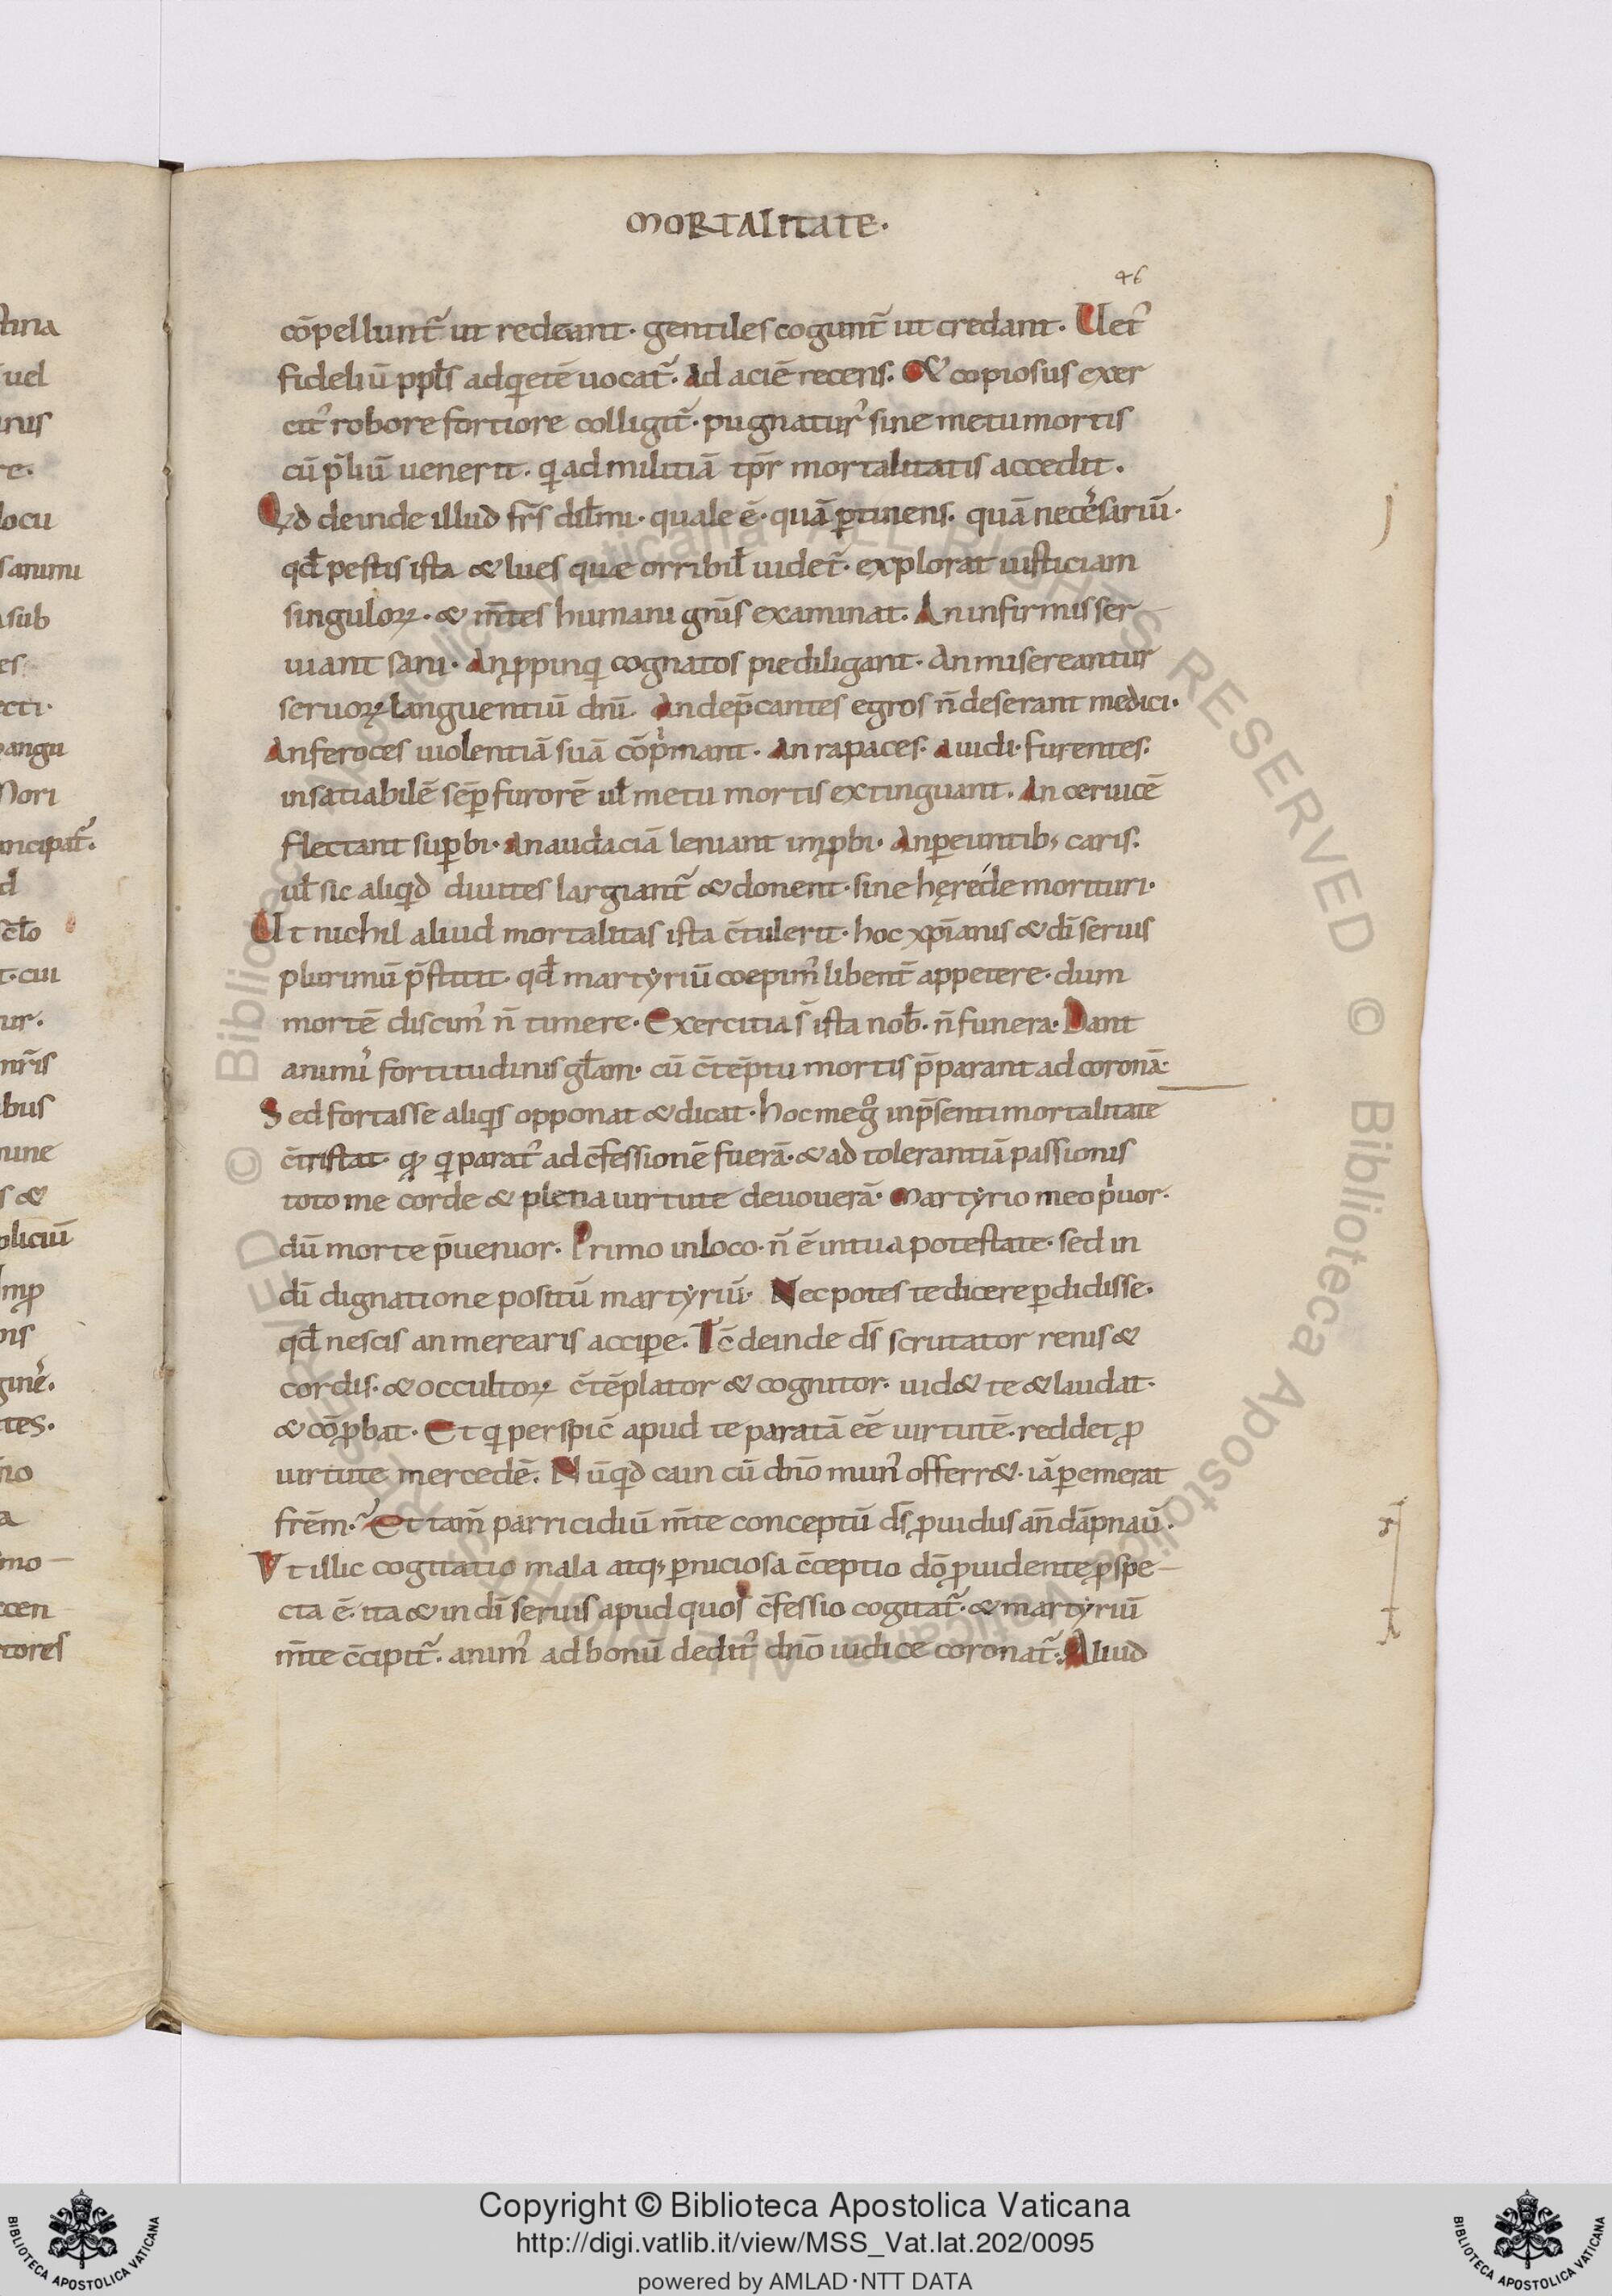 MORTALITATE·
46
cōpellunt᷑ ut redeant· gentiles cogunt᷑ ut credant· Uet᾽
fideliū ppl̄s adqietē uocat᷑· Ad aciē recens· & copiosus exer
cit᾽ robore fortiore colligit᷑· pugnatur᾽ sine metu mortis
cū p̄liū uenerit· qi ad militiā tp̄r mortalitatis accedit·
Qd deinde illud fr̄s dil̄mi· quale ē· quā ꝑtinens· quā necēsariū·
qd̄ pestis ista & lues quae orribil̄ uidet᷑· explorat iusticiam
singuloꝝ· & m̄tes humani gn̄is examinat· An infirmis ser
uiant sani· An ꝓpinqi cognatos pie diligant· An misereantur
seruoꝝ languentiū dn̄i· An dep̄cantes egros n̄ deserant medici·
An feroces uiolentiā suā cōp̄mant· An rapaces· auidi· furentes·
insatiabilē sēꝑ furorē ul̄ metu mortis extinguant· An ceruicē
flectant suꝑbi· An audaciā leniant imꝓbi· An ꝑeuntib; caris·
ul̄ sic aliqid diuites largiant᷑ & donent· sine hęréde morituri·
Ut nichil aliud mortalitas ista c̄tulerit· hoc xp̄ianis & dī seruis
plurimū p̄stitit· qd̄ martyriū coepim᾽ libent᷑ appetere· dum
mortē discim᾽ n̄ timere· Exercitia s̄ ista nob̄· n̄ funera· Dant
animi᾽ fortitudinis gl̄am· cū c̄tēptu mortis p̄parant ad coronā·
Sed fortasse aliqis opponat & dicat· hoc me gͦ in p̄senti mortalitate
c̄tristat· qꝫ qi parat᾽ ad c̄fessionē fuerā· & ad tolerantiā passionis
toto me corde & plena uirtute deuouerā· Martyrio meo p̍uor·
dū morte p̄uenior· Primo in loco· n̄ ē in tua potestate· sed in
dī dignatione positū martyriū· Nec potes te dicere ꝑdidisse·
qd̄ nescis an merearis acciꝑe· Tc̄ deinde ds̄ scrutator renis &
cordis· & occultoꝝ c̄tēplator & cognitor· uid& te & laudat·
& cōꝓbat· Et qi perspic̄ apud te paratā eē uirtutē· reddet ꝓ
uirtute mercedē· Nūqid cain cū dn̄o mun᾽ offerr&· iā ꝑemerat
fr̄em·᷑ Et tam̄ parricidiū m̄te conceptū ds̄ ꝓuidus an̄ dāpnaū·
Vt illic cogitatio mala atq; ꝑniciosa c̄ceptio dō ꝓuidente ꝓspe—
cta ē· ita & in dī seruis apud quos c̄fessio cogitat᷑· & martyriū
m̄te c̄cipit᷑· anim᾽ ad bonū dedit᾽ dn̄o iudice coronat᷑· Aliud
Copyright © Biblioteca Apostolica Vaticana
http://digi.vatlib.it/view/MSS_Vat.lat.202/0095
powered by AMLAD·NTT DATA